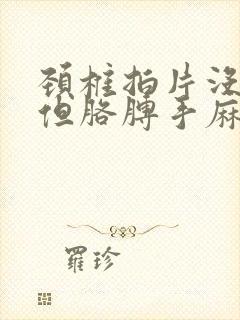 頚椎拍片沒
但胳膊手麻
羅珍